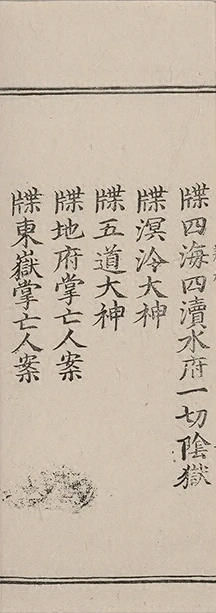 牒四海四瀆水府一切陰獄
牒溟泠大神
牒五道大神
牒地府掌亡人案
牒東嶽掌亡人案